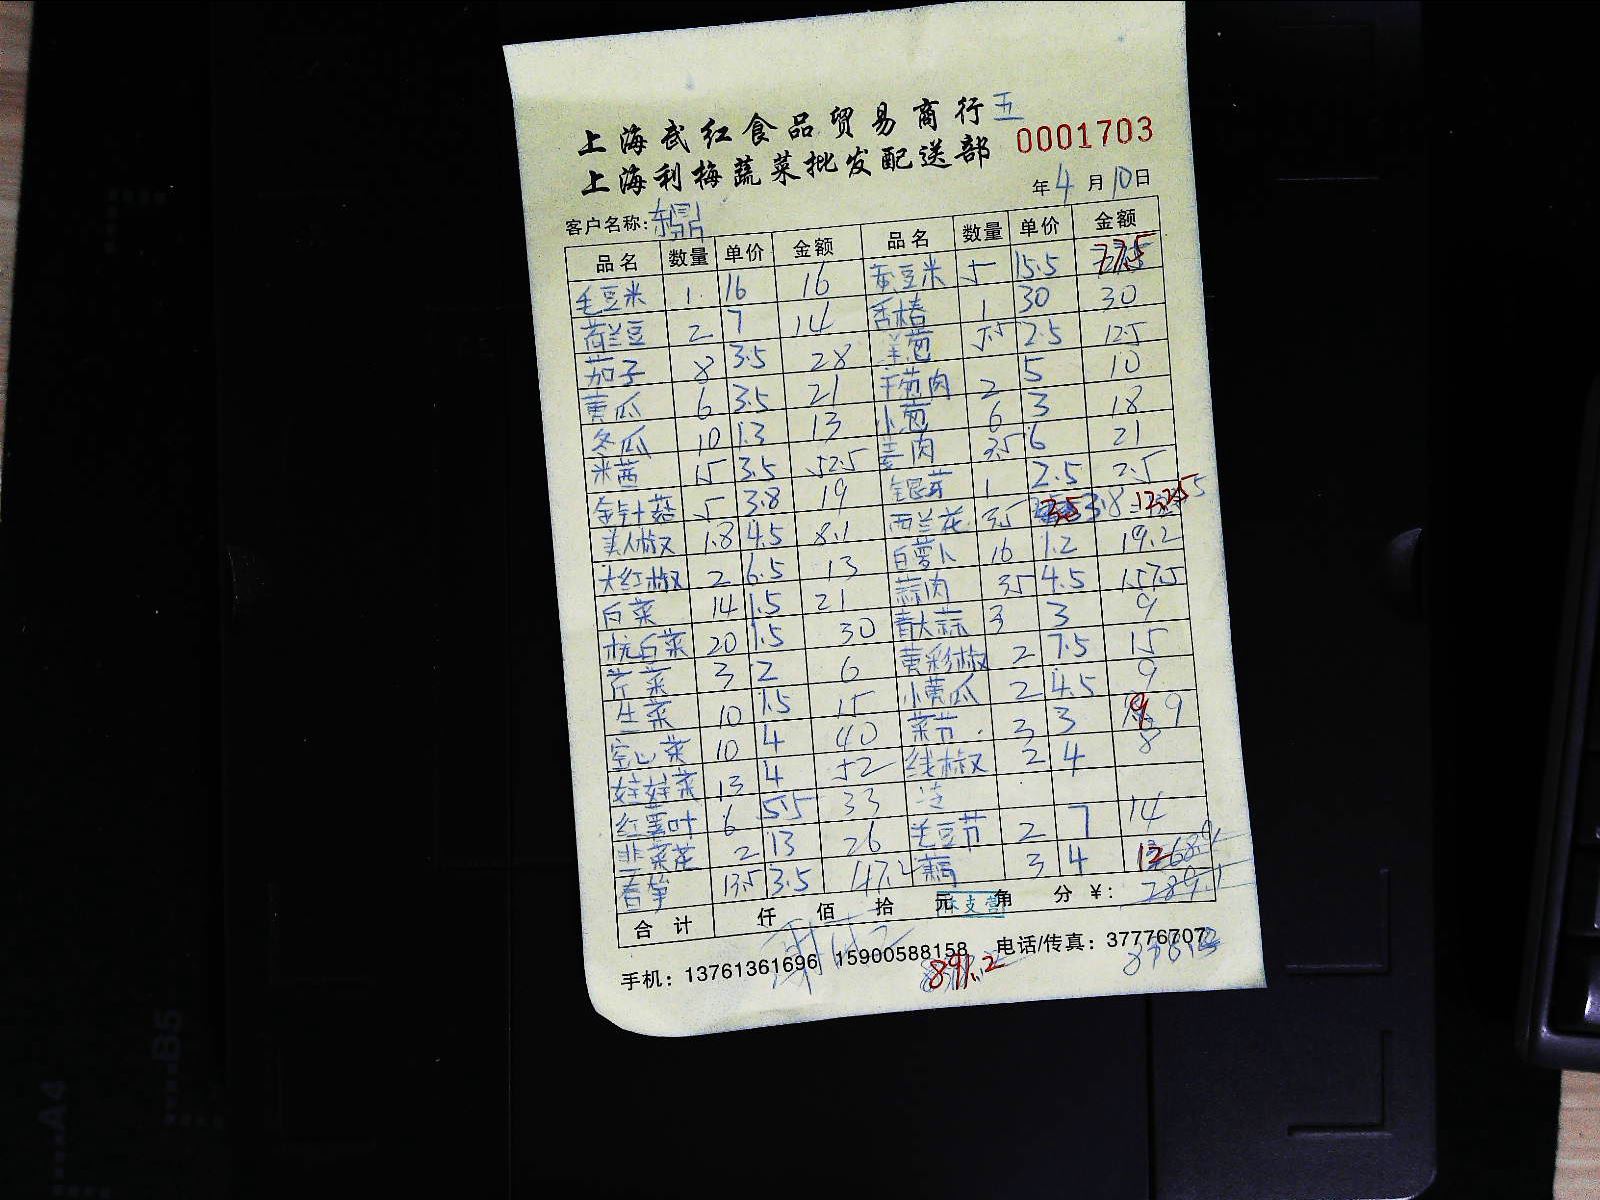 上海武红食品贸易商行 五
上海利梅蔬菜批发配送部 0001703
年4月10日
客户名称: 东鼎
品名 数量 单价 金额 品名 数量 单价 金额
毛豆米 1 16 16 黄豆米 5 15.5 77.5
荷兰豆 2 7 14 香椿 1 30 30
茄子 8 3.5 28 洋葱 5 2.5 12.5
黄瓜 6 3.5 21 干葱肉 2 5 10
冬瓜 10 1.3 13 小葱 6 3 18
米茜 15 3.5 52.5 姜肉 3.5 6 21
金针菇 5 3.8 19 银芽 1 2.5 2.5
美人椒 1.8 4.5 8.1 西兰花 3.5 3.5 12.25
大红椒 2 6.5 13 白萝卜 16 1.2 19.2
白菜 14 1.5 21 蒜肉 3.5 4.5 15.75
杭白菜 20 1.5 30 青大蒜 3 3 9
芹菜 3 2 6 黄彩椒 2 7.5 15
生菜 10 1.5 15 小黄瓜 2 4.5 9
空心菜 10 4 40 菜节 3 3 9
娃娃菜 13 4 52 线椒 2 4 8
红薯叶 6 5.5 33
韭菜花 2 13 26 毛豆节 2 7 14
春笋 13.5 3.5 47.2 藕 3 4 12
合计 仟 佰 拾 元 角 分 ¥: 289.1
手机: 13761361696 15900588158 电话/传真: 37776707
891.2